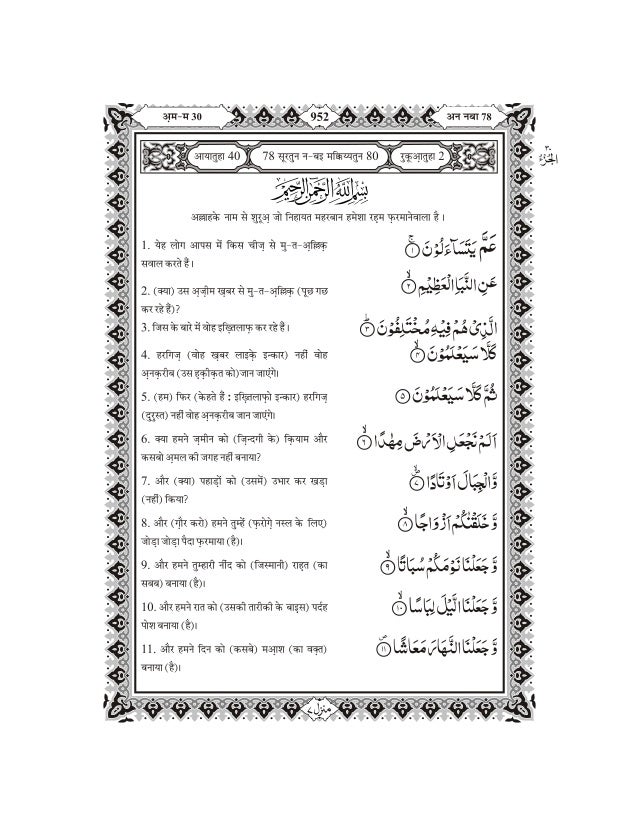 अ़म-म 30
952
अन नबा 78
आयातुहा 40
78 सूरतुन न-बइ मक्कियतुन 80
रुकूआ़तुहा 2
٣٠
الجزء
بِسْمِ اللّٰهِ الرَّحْمٰنِ الرَّحِيْمِ
अल्लाहके नाम से शुरूअ़ जो निहायत महरबान हमेशा रह़म फ़रमानेवाला है ।
1. येह लोग आपस में किस चीज़ से मु-त-अ़ल्लिक़
सवाल करते हैं।
عَمَّ يَتَسَآءَلُوْنَ ۚ ١
2. (क्या) उस अ़ज़ीम ख़बर से मु-त-अ़ल्लिक़ (पूछ गछ
कर रहे हैं)?
عَنِ النَّبَاِ الْعَظِيْمِ ۙ ٢
3. जिस के बारे में वोह इख़्तिलाफ़ कर रहे हैं।
الَّذِيْ هُمْ فِيْهِ مُخْتَلِفُوْنَ ؕ ٣
4. हरगिज़ (वोह ख़बर लाइके़ इन्कार) नहीं वोह
अ़नक़रीब (उस ह़क़ीक़त को)जान जाएंगे।
كَلَّا سَيَعْلَمُوْنَ ۙ ٤
5. (हम) फिर (केहते हैं : इख़्तिलाफ़ो इन्कार) हरगिज़
(दुरुस्त) नहीं वोह अ़नक़रीब जान जाएंगे।
ثُمَّ كَلَّا سَيَعْلَمُوْنَ ٥
6. क्या हमने ज़मीन को (ज़िन्दगी के) क़ियाम और
कसबो अ़मल की जगह नहीं बनाया?
اَلَمْ نَجْعَلِ الْاَرْضَ مِهٰدًا ۙ ٦
7. और (क्या) पहाड़ों को (उसमें) उभार कर खड़ा
(नहीं) किया?
وَّالْجِبَالَ اَوْتَادًا ۪ ٧
8. और (ग़ौर करो) हमने तुम्हें (फ़रोग़े नस्ल के लिए)
जोड़ा जोड़ा पैदा फ़रमाया (है)।
وَّخَلَقْنٰكُمْ اَزْوَاجًا ۙ ٨
9. और हमने तुम्हारी नींद को (जिस्मानी) राह़त (का
सबब) बनाया (है)।
وَّجَعَلْنَا نَوْمَكُمْ سُبَاتًا ۙ ٩
10. और हमने रात को (उसकी तारीकी के बाइस) पर्दह
पोश बनाया (है)।
وَّجَعَلْنَا الَّيْلَ لِبَاسًا ۙ ١٠
11. और हमने दिन को (कसबे) मआ़श (का वक़्त)
बनाया (है)।
وَّجَعَلْنَا النَّهَارَ مَعَاشًا ۪ ١١
منزل ٧